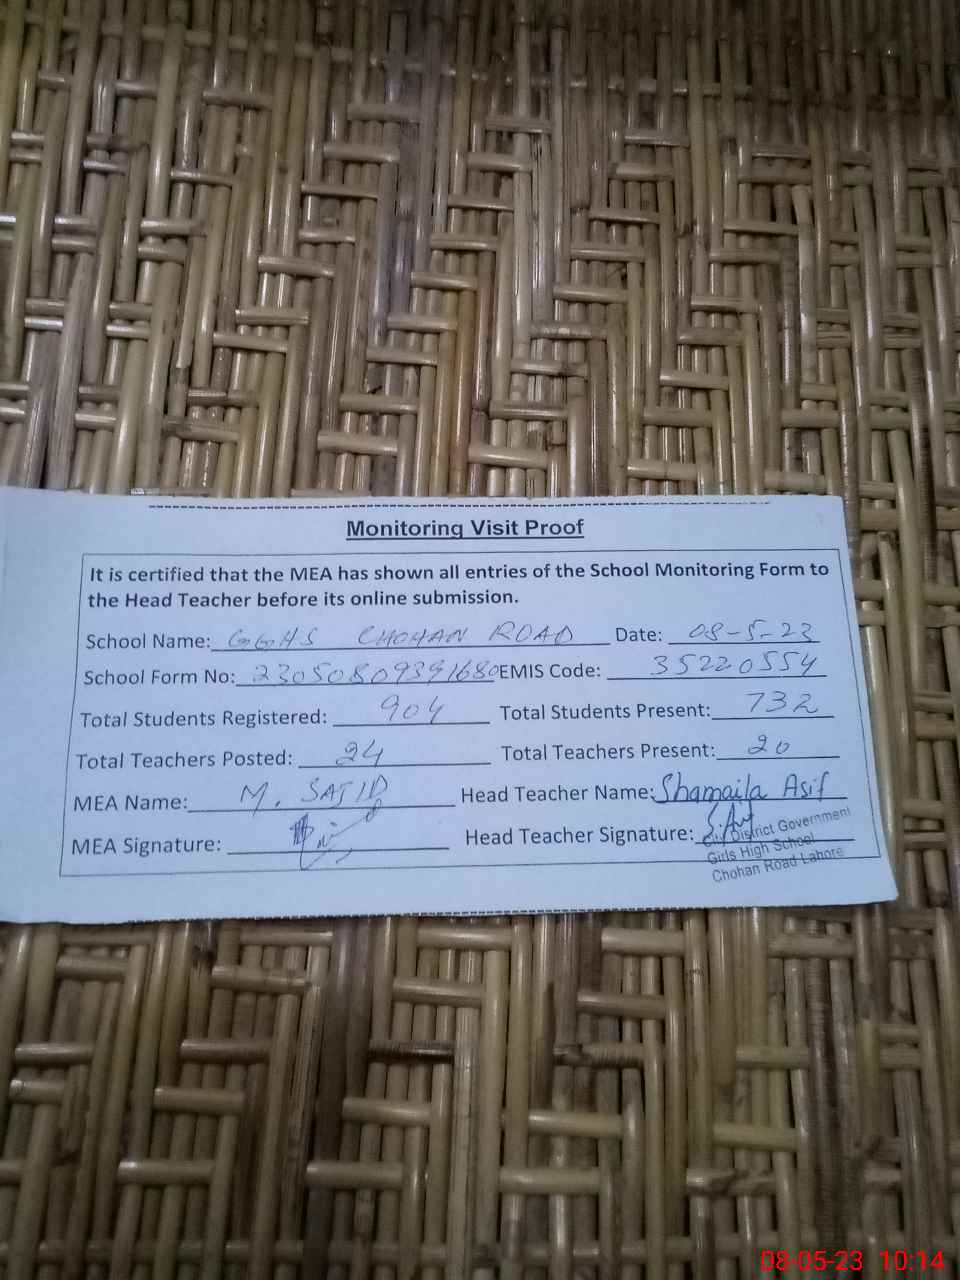 Monitoring Visit Proof
It is certified that the MEA has shown all entries of the School Monitoring Form to
the Head Teacher before its online submission.
School Name: GGHS CHOHAN ROAD Date: 08-5-23
School Form No: 23050809391680 EMIS Code: 35220554
Total Students Registered: 904 Total Students Present: 732
Total Teachers Posted: 24 Total Teachers Present: 20
MEA Name: M. SAJID Head Teacher Name: Shamaila Asif
MEA Signature: Head Teacher Signature:
City District Government
Girls High School
Chohan Road Lahore
08-05-23 10:14